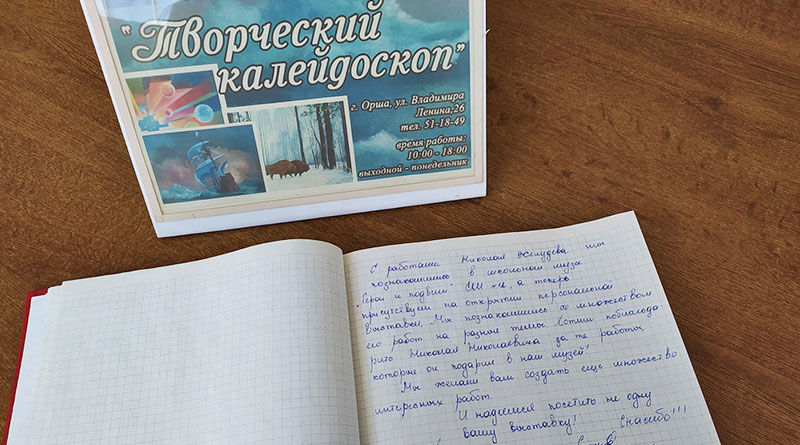 "Творческий
калейдоскоп"
г. Орша, ул. Владимира
Ленина,26
тел. 51-18-49
время работы:
10:00 - 18:00
выходной - понедельник
С работами Николая мы
познакомились в школьном музее
"Герои и подвиги" СШ №12, а теперь
присутствуем на открытии персональной
выставки. Мы познакомились со множеством
его работ на разные темы. Хотим поблагода-
рить Николая Николаевича за те работы,
которые он подарил в наш музей!
Мы желаем вам создать еще множество
интересных работ.
И надеемся посетить не одну
вашу выставку!
Спасибо!!!